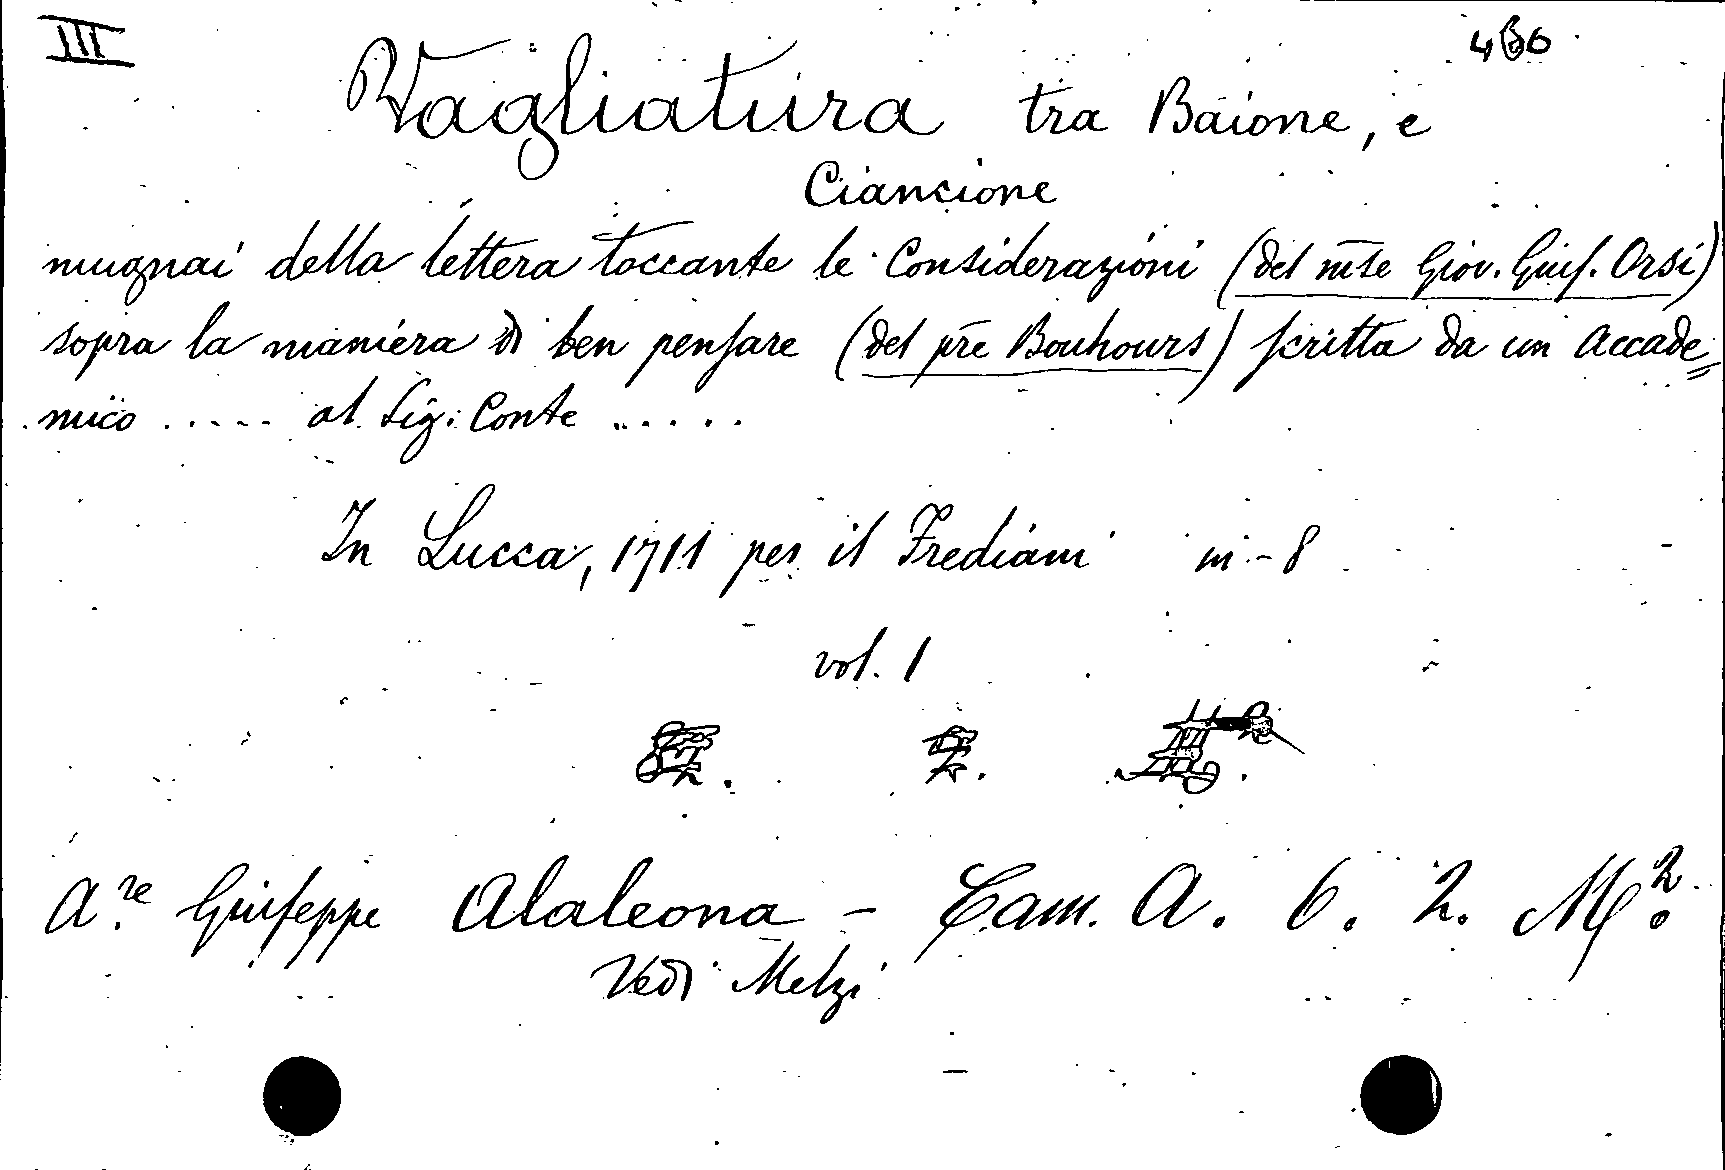 III
Vagliatura tra Baione, e
Ciancione
mugnai della lettera toccante le Considerazioni (del mse Giov. Gius. Orsi)
sopra la maniera di ben pensare (del pre Bouhours) scritta da un Accade=
mico ..... al Sig. Conte .....
In Lucca, 1711 per il Frediani in-8
vol. 1
A.re Giuseppe Alaleona - Cam. A. 6. 2. M.2
Vedi Melzi